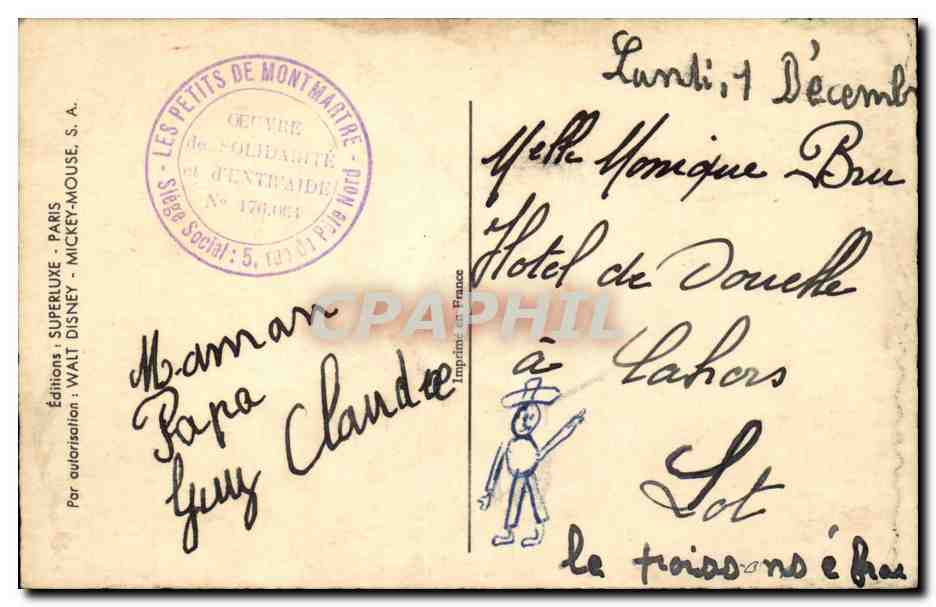 Éditions : SUPERLUXE - PARIS
Par autorisation : WALT DISNEY - MICKEY-MOUSE, S. A.
- LES PETITS DE MONTMARTRE -
ŒUVRE
de SOLIDARITÉ
et d'ENTR'AIDE
Siège Social : 5, rue du Pôle Nord
Imprimé en France
CPAPHIL
Maman
Papa
Guy Claudie
Lundi, 1 Décemb
Melle Monique Bru
Hotel de Douelle
à Cahors
Lot